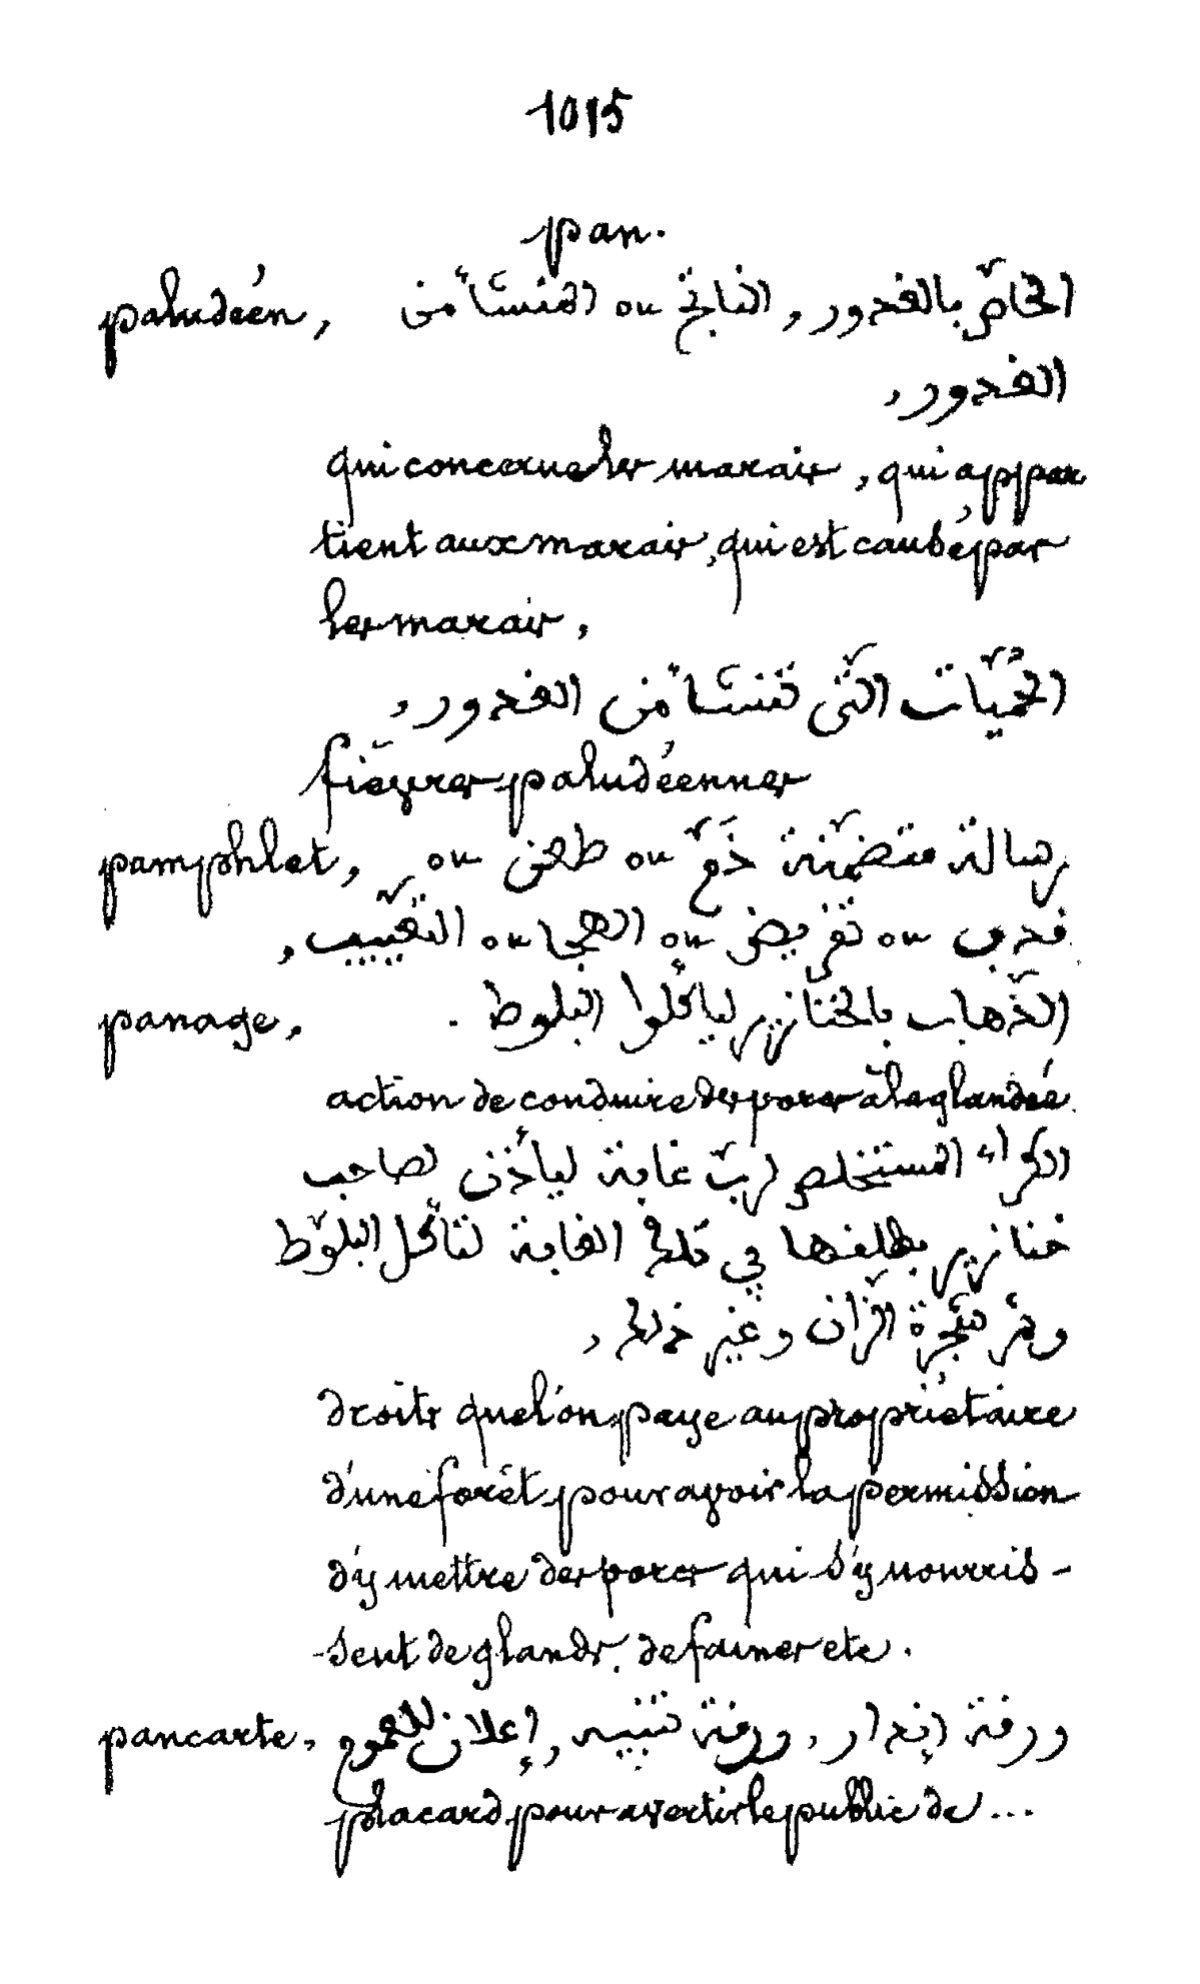 1015
pan.
paludéen, الخاصّ بالغدور, الناتج ou المنشأ من
الغدور,
qui concerne les marais, qui appar
tient aux marais, qui est causé par
les marais,
الحُمّيّات الّتي تنشأ من الغدور,
fièvres paludéennes
pamphlet, رسالة متضمّنة ذَمّ ou طعن ou
قدف ou تقريض ou الهجا ou التّعييب,
panage, الذّهاب بالخنازير ليأكلوا البلوط.
action de conduire des porcs à la glandée.
الكراء المستخلص لربّ غابة ليأذن لصاحب
خنازير بطلقها في تلك الغابة لتأكل البلّوط
وثمر شجرة الزّان وغير ذلك,
droits que l'on paye au propriétaire
d'une forêt pour avoir la permission
d'y mettre des porcs qui s'y nourris-
-sent de glands, de faines etc.
pancarte, ورقة إنذار, ورقة تنبيه, إعلان للعموم
placard pour avertir le public de ...